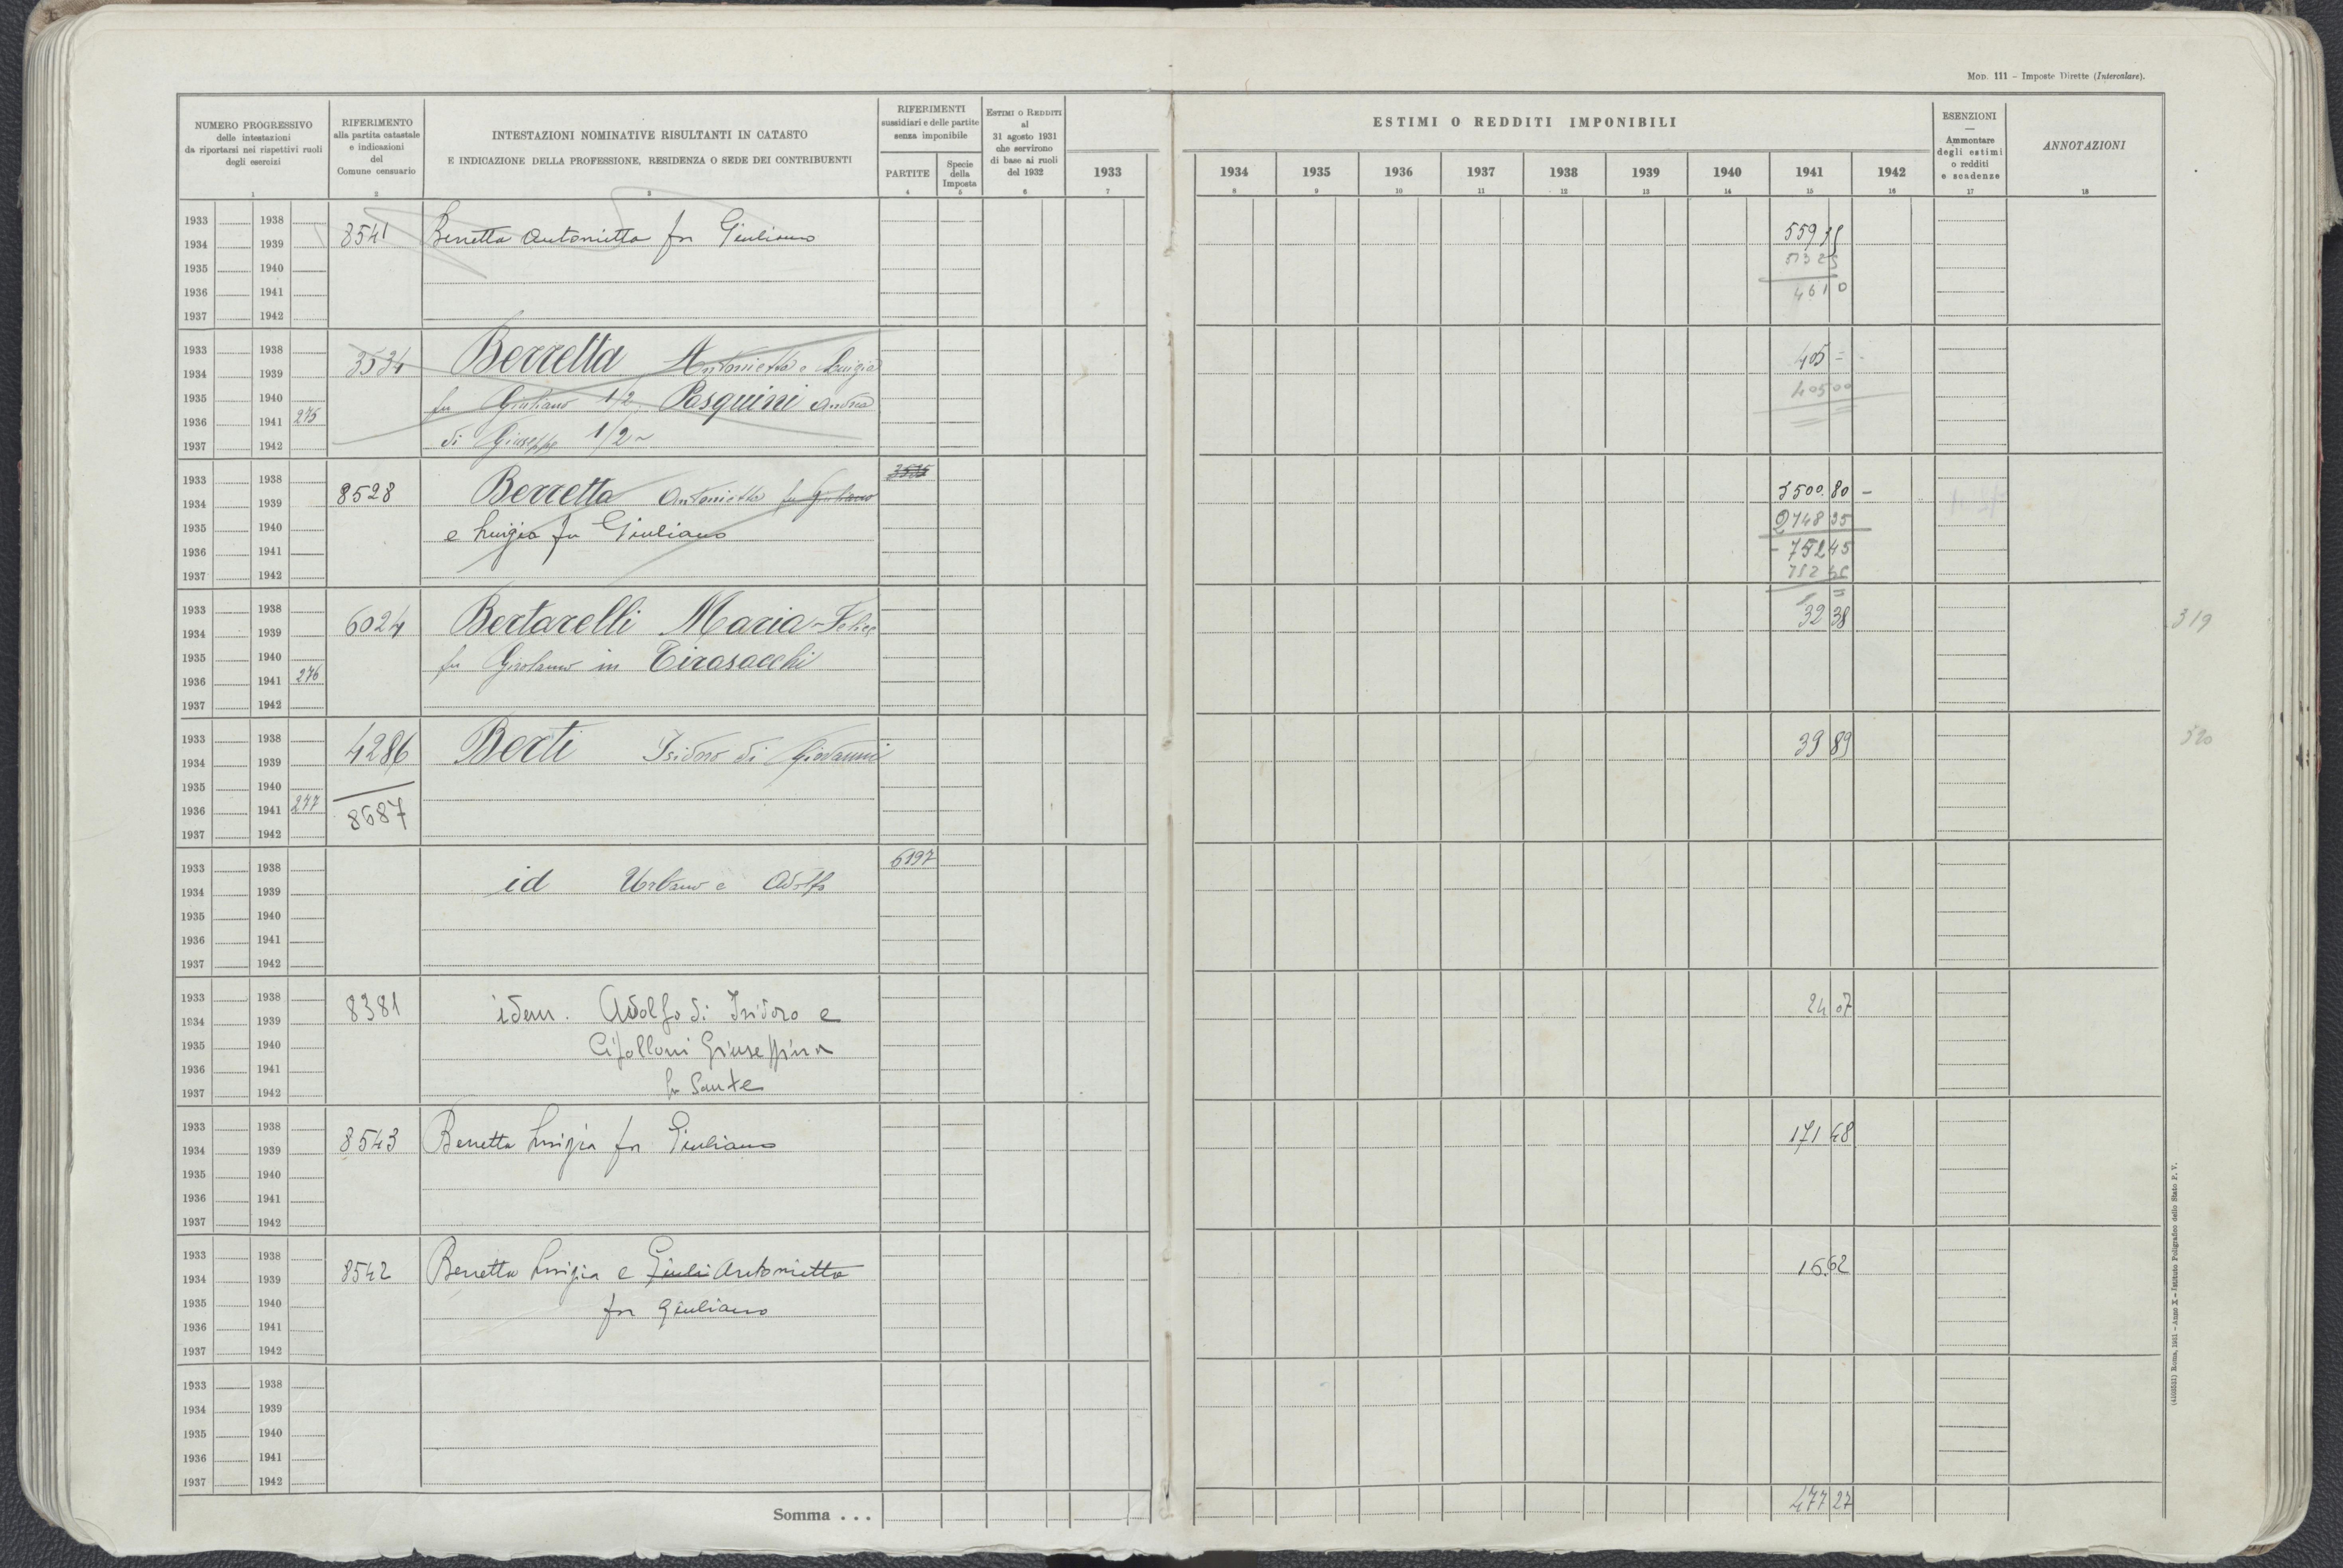 MOD. 111 – Imposte Dirette (Intercalare).
NUMERO PROGRESSIVO
delle intestazioni
da riportarsi nei rispettivi ruoli
degli esercizi
1
RIFERIMENTO
alla partita catastale
e indicazioni
del
Comune censuario
2
INTESTAZIONI NOMINATIVE RISULTANTI IN CATASTO
E INDICAZIONE DELLA PROFESSIONE, RESIDENZA O SEDE DEI CONTRIBUENTI
3
RIFERIMENTI
sussidiari e delle partite
senza imponibile
PARTITE
4
Specie
della
Imposta
5
ESTIMI O REDDITI
al
31 agosto 1931
che servirono
di base ai ruoli
del 1932
6
ESTIMI O REDDITI IMPONIBILI
1933 1934 1935 1936 1937 1938 1939 1940 1941 1942
7 8 9 10 11 12 13 14 15 16
ESENZIONI
—
Ammontare
degli estimi
o redditi
e scadenze
17
ANNOTAZIONI
18
1933 1938
1934 1939 8541 Berretta Antonietta fu Giuliano 559
1935 1940 513 25
1936 1941 46 10
1937 1942
1933 1938
1934 1939 3534 Berretta Antonietta e Luigia 405 =
1935 1940 fu Giuliano 1/2, Pasquini Andrea 405 00
1936 1941 275
1937 1942 di Giuseppe 1/2 ~
1933 1938
1934 1939 8528 Berretta Antonietta fu Giuliano 3500.80 –
1935 1940 e Luigia fu Giuliano 2748 35
1936 1941 - 752 45
1937 1942 752 45
1933 1938
1934 1939 6024 Bertarelli Maria-Felice 32 38 319
1935 1940 fu Girolamo in Tirasacchi
1936 1941 276
1937 1942
1933 1938
1934 1939 4286 Berti Isidoro di Giovanni 39 89 320
1935 1940
1936 1941 277 8687
1937 1942
1933 1938 6197
1934 1939 id Urbano e Adolfo
1935 1940
1936 1941
1937 1942
1933 1938
1934 1939 8381 idem. Adolfo di Isidoro e 24 07
1935 1940 Cifolloni Giuseppina
1936 1941
1937 1942 fu Sante
1933 1938
1934 1939 8543 Berretta Luigia fu Giuliano 171 68
1935 1940
1936 1941
1937 1942
1933 1938
1934 1939 8542 Berretta Luigia e Giuli Antonietta
1935 1940 fu Giuliano
1936 1941
1937 1942
1933 1938
1934 1939
1935 1940
1936 1941
1937 1942
Somma . . . 477 27
(4103531) Roma, 1931 – Anno X – Istituto Poligrafico dello Stato P. V.